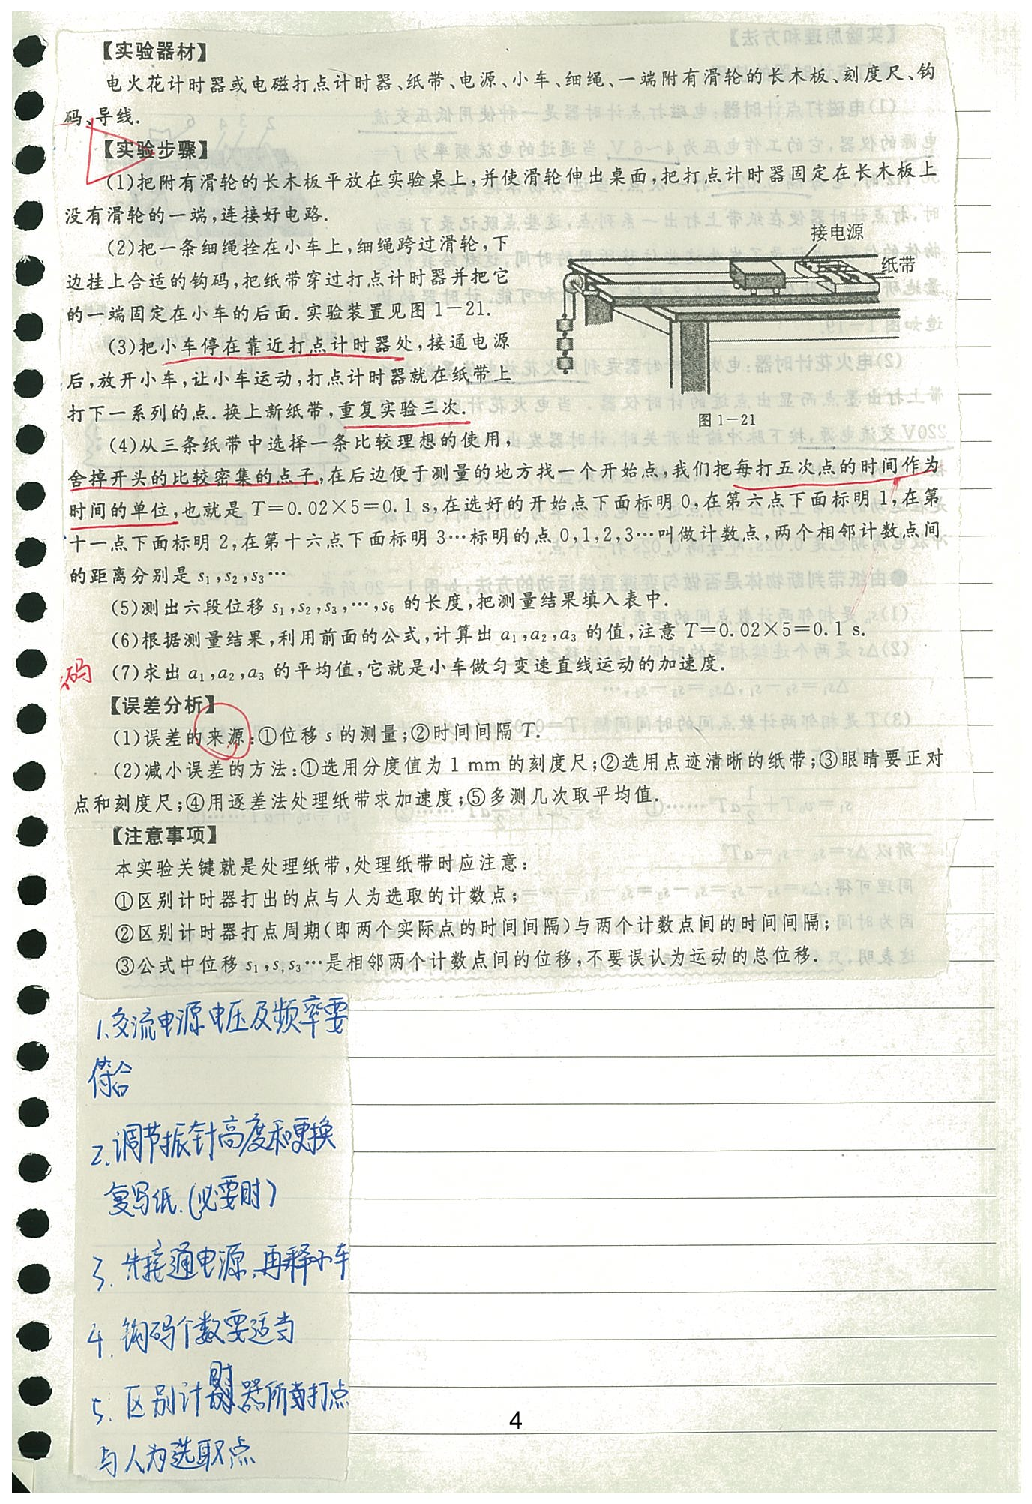 【实验器材】
电火花计时器或电磁打点计时器、纸带、电源、小车、细绳、一端附有滑轮的长木板、刻度尺、钩
码、导线.
【实验步骤】
(1)把附有滑轮的长木板平放在实验桌上,并使滑轮伸出桌面,把打点计时器固定在长木板上
没有滑轮的一端,连接好电路.
(2)把一条细绳拴在小车上,细绳跨过滑轮,下
边挂上合适的钩码,把纸带穿过打点计时器并把它
的一端固定在小车的后面.实验装置见图1-21.
(3)把小车停在靠近打点计时器处,接通电源
后,放开小车,让小车运动,打点计时器就在纸带上
打下一系列的点.换上新纸带,重复实验三次.
接电源
纸带
图1-21
(4)从三条纸带中选择一条比较理想的使用,
舍掉开头的比较密集的点子,在后边便于测量的地方找一个开始点,我们把每打五次点的时间作为
时间的单位,也就是T=0.02×5=0.1 s,在选好的开始点下面标明0,在第六点下面标明1,在第
十一点下面标明2,在第十六点下面标明3…标明的点0,1,2,3…叫做计数点,两个相邻计数点间
的距离分别是s₁,s₂,s₃…
(5)测出六段位移s₁,s₂,s₃,…,s₆的长度,把测量结果填入表中.
(6)根据测量结果,利用前面的公式,计算出a₁,a₂,a₃的值,注意T=0.02×5=0.1 s.
码
(7)求出a₁,a₂,a₃的平均值,它就是小车做匀变速直线运动的加速度.
【误差分析】
(1)误差的来源:①位移s的测量;②时间间隔T.
(2)减小误差的方法:①选用分度值为1 mm的刻度尺;②选用点迹清晰的纸带;③眼睛要正对
点和刻度尺;④用逐差法处理纸带求加速度;⑤多测几次取平均值.
【注意事项】
本实验关键就是处理纸带,处理纸带时应注意:
①区别计时器打出的点与人为选取的计数点;
②区别计时器打点周期(即两个实际点的时间间隔)与两个计数点间的时间间隔;
③公式中位移s₁,s,s₃…是相邻两个计数点间的位移,不要误认为运动的总位移.
1.交流电源电压及频率要
符合
2.调节振针高度和更换
复写纸.(必要时)
3.先接通电源,再释小车
4.钩码个数要适当
5.区别计时器所打点
与人为选取点
4